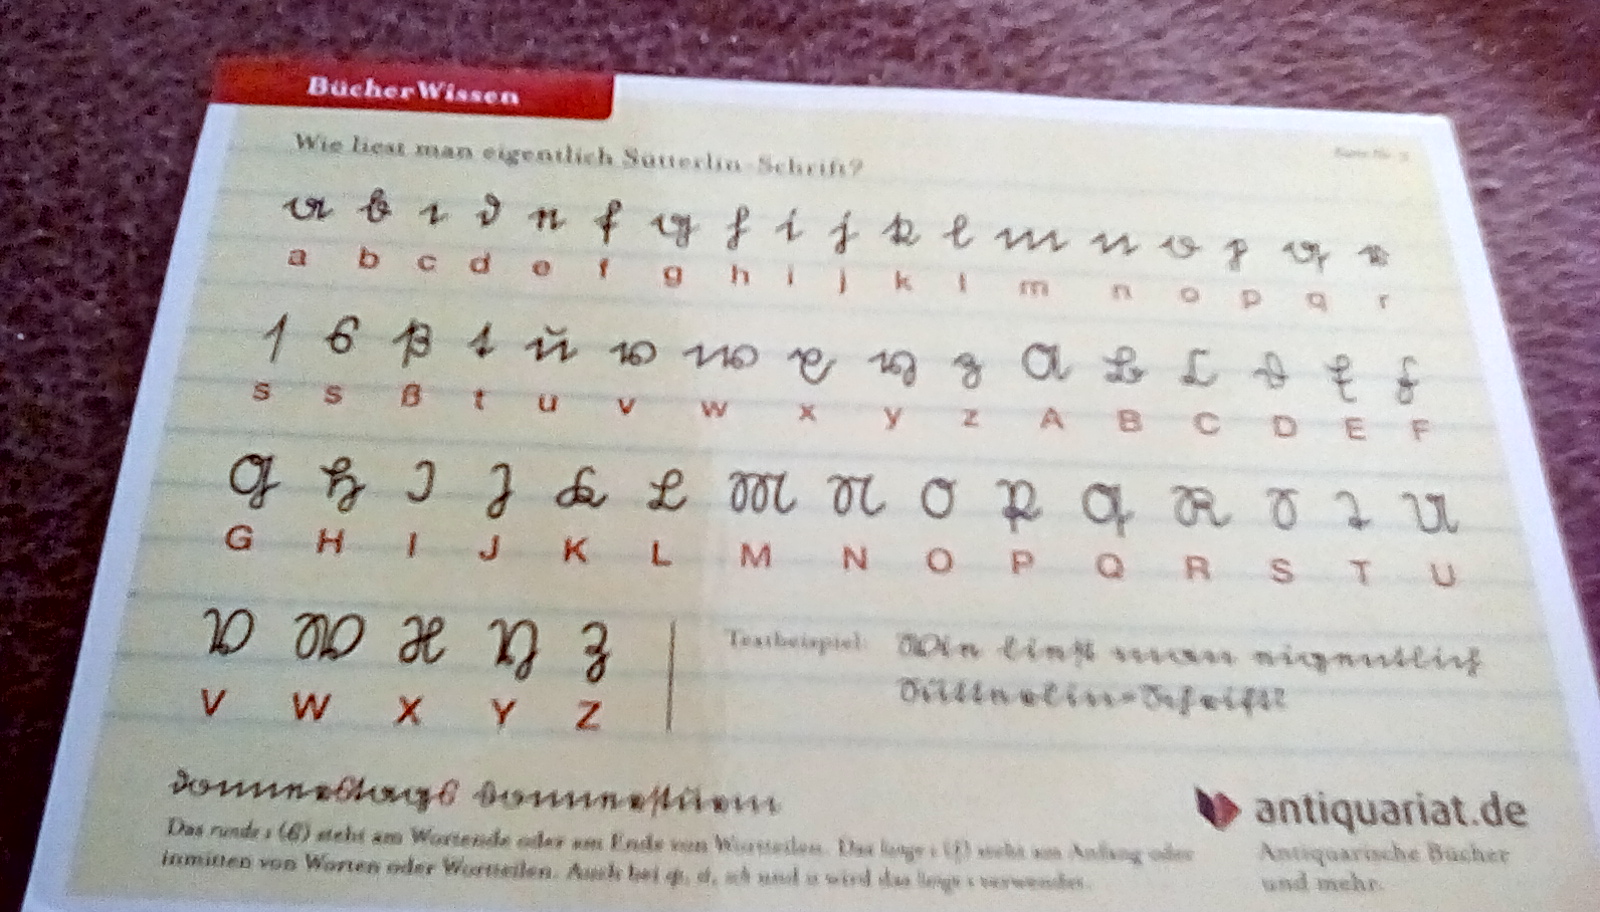 BücherWissen
Wie liest man eigentlich Sütterlin-Schrift?
a b c d e f g h i j k l m n o p q r
a b c d e f g h i j k l m n o p q r
s s ß t u v w x y z A B C D E F
s s ß t u v w x y z A B C D E F
G H I J K L M N O P Q R S T U
G H I J K L M N O P Q R S T U
V W X Y Z
V W X Y Z
Textbeispiel: Wie liest man eigentlich
Sütterlin-Schrift?
donnerstags Donnersturm
Das runde s (s) steht am Wortende oder am Ende von Wortteilen. Das lange s (ſ) steht am Anfang oder
inmitten von Worten oder Wortteilen. Auch bei und wird das lange s verwendet.
antiquariat.de
Antiquarische Bücher
und mehr.